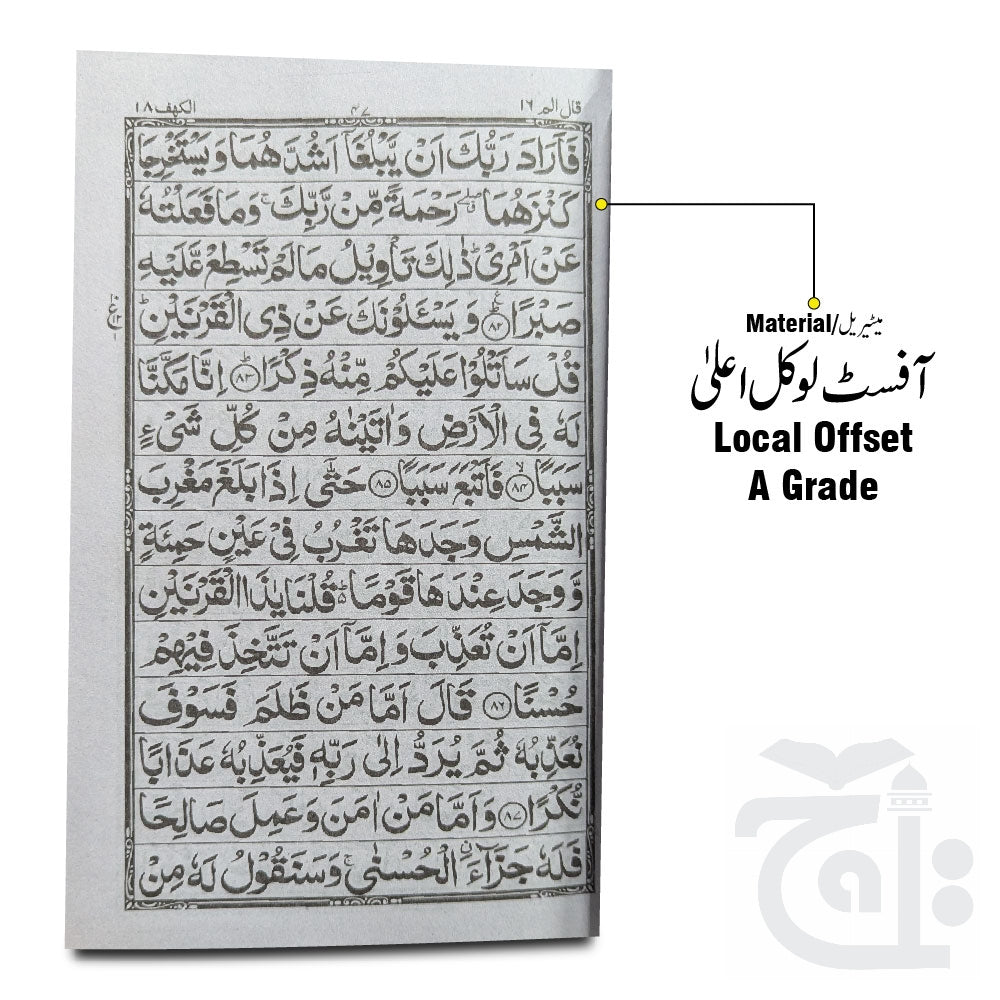 قال الم ١٦
٤٧
الكهف ١٨
فَاَرَادَ رَبُّكَ اَنْ يَّبْلُغَاۤ اَشُدَّهُمَا وَيَسْتَخْرِجَا
كَنْزَهُمَا ۖ رَحْمَةً مِّنْ رَّبِّكَ ۚ وَمَا فَعَلْتُهٗ
عَنْ اَمْرِىْ ؕ ذٰلِكَ تَاْوِيْلُ مَا لَمْ تَسْطِعْ عَّلَيْهِ
صَبْرًا ؕ ﴿۸۲﴾ وَيَسْـَٔلُوْنَكَ عَنْ ذِى الْقَرْنَيْنِ ؕ
قُلْ سَاَتْلُوْا عَلَيْكُمْ مِّنْهُ ذِكْرًا ؕ ﴿۸۳﴾ اِنَّا مَكَّنَّا
لَهٗ فِى الْاَرْضِ وَاٰتَيْنٰهُ مِنْ كُلِّ شَىْءٍ
سَبَبًا ۙ ﴿۸۴﴾ فَاَتْبَعَ سَبَبًا ﴿۸۵﴾ حَتّٰٓى اِذَا بَلَغَ مَغْرِبَ
الشَّمْسِ وَجَدَهَا تَغْرُبُ فِىْ عَيْنٍ حَمِئَةٍ
وَّوَجَدَ عِنْدَهَا قَوْمًا ؕ قُلْنَا يٰذَا الْقَرْنَيْنِ
اِمَّاۤ اَنْ تُعَذِّبَ وَاِمَّاۤ اَنْ تَتَّخِذَ فِيْهِمْ
حُسْنًا ﴿۸۶﴾ قَالَ اَمَّا مَنْ ظَلَمَ فَسَوْفَ
نُعَذِّبُهٗ ثُمَّ يُرَدُّ اِلٰى رَبِّهٖ فَيُعَذِّبُهٗ عَذَابًا
نُّكْرًا ﴿۸۷﴾ وَاَمَّا مَنْ اٰمَنَ وَعَمِلَ صَالِحًا
فَلَهٗ جَزَآءَ ۨ الْحُسْنٰى ۚ وَسَنَقُوْلُ لَهٗ مِنْ
Material/میٹیریل
آفسٹ لوکل اعلیٰ
Local Offset
A Grade
تاج